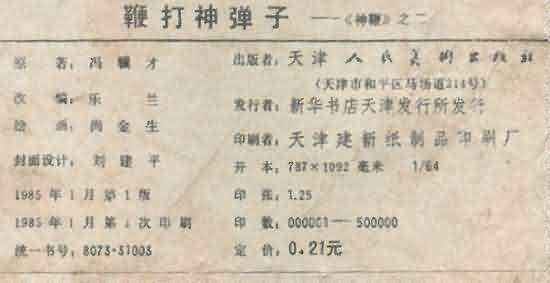 鞭打神弹子 ——《神鞭》之二
原 著：冯骥才
改 编：乐 兰
绘 画：尚金生
封面设计：刘建平
1985年1月第1版
1985年1月第1次印刷
统一书号：8073·31003
出版者：天津人民美术出版社
（天津市和平区马场道214号）
发行者：新华书店天津发行所发行
印刷者：天津建新纸制品印刷厂
开 本：787×1092 毫米 1/64
印 张：1.25
印 数：000001—500000
定 价：0.21元